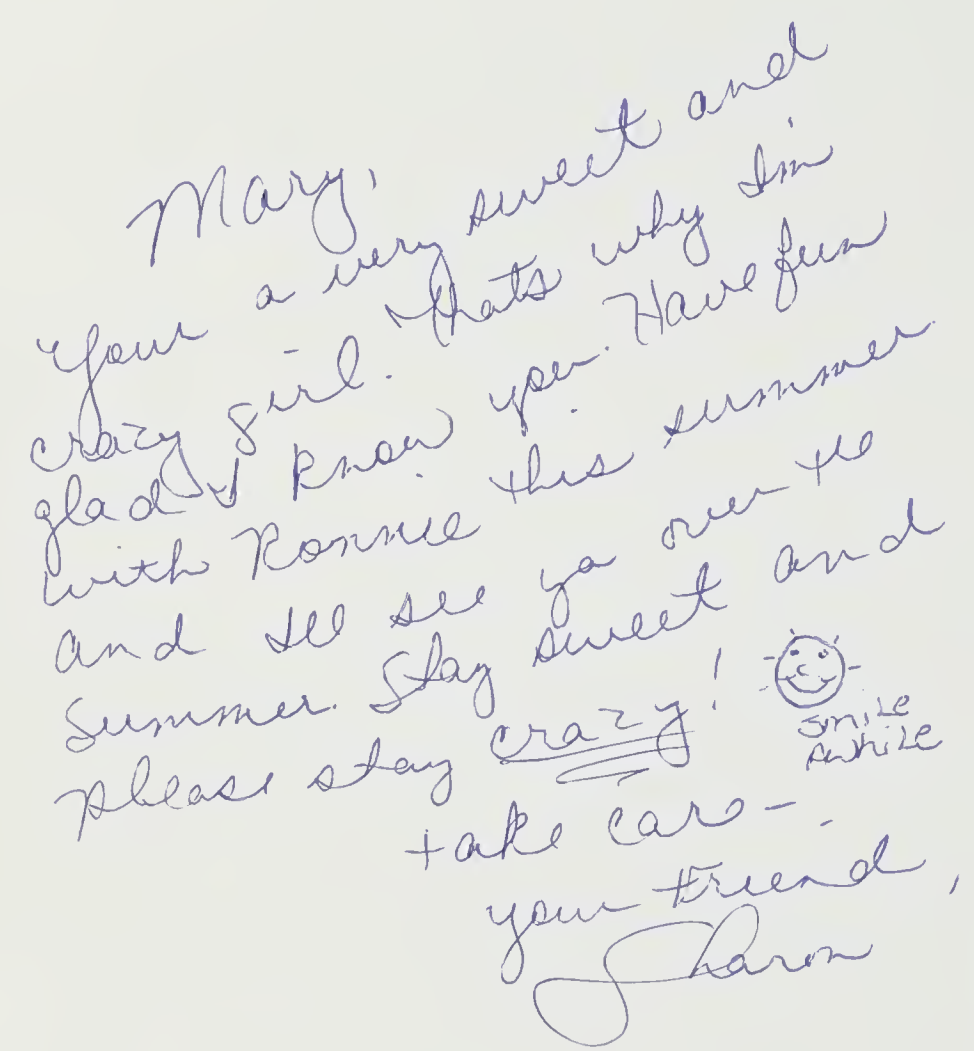 Mary,
Your a very sweet and
crazy girl. Thats why I'm
glad I know you. Have fun
with Ronnie this summer.
and Ill see ya over the
Summer. Stay sweet and
please stay crazy!
smile
Awhile
take care -
your friend,
Sharon